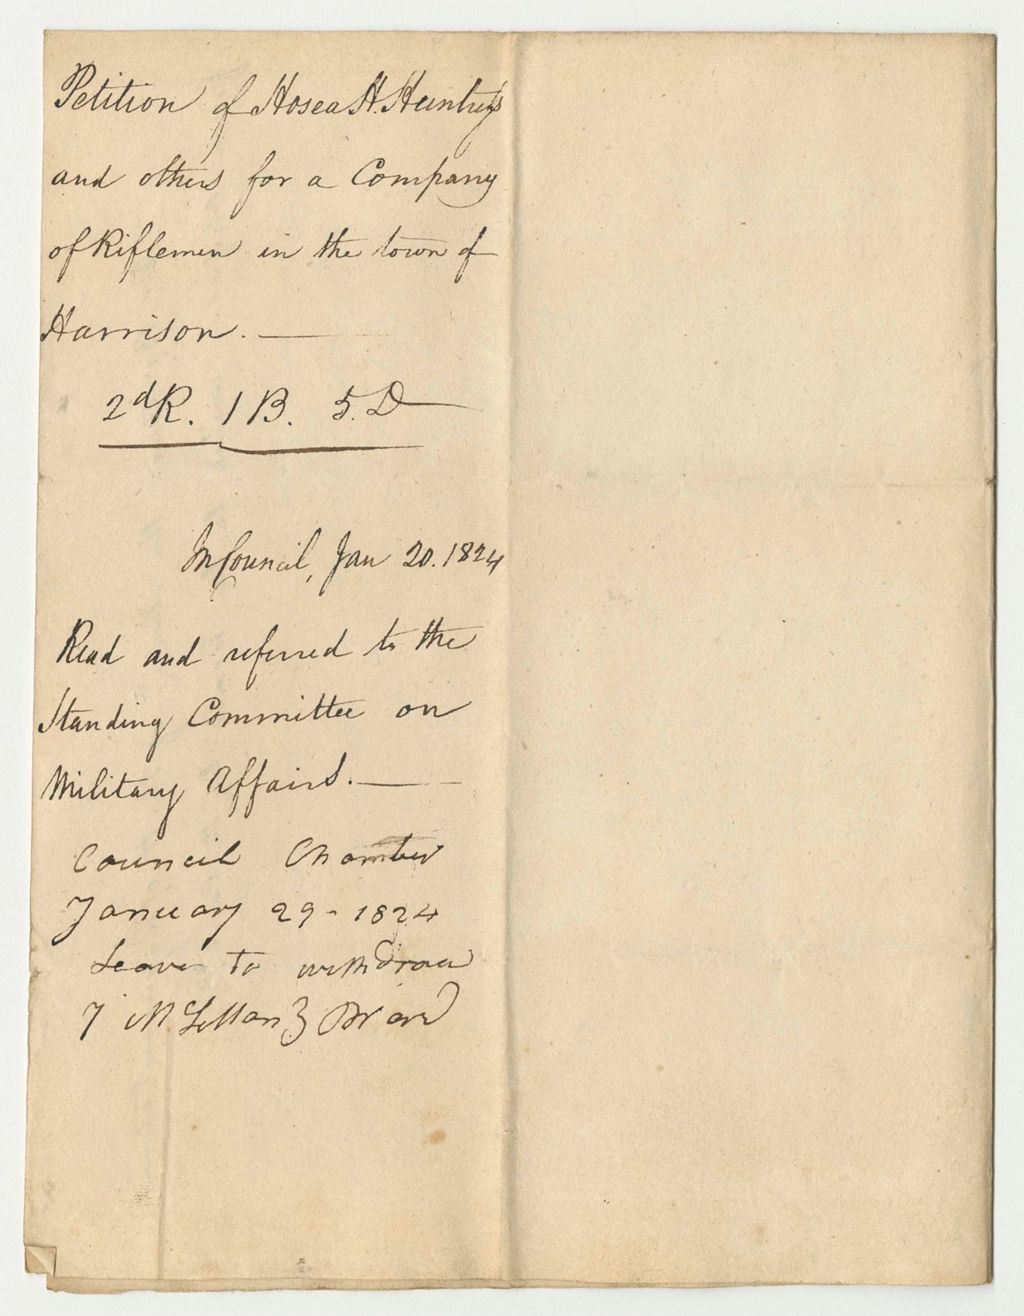 Petition of Hosea H. Huntley's
and others for a Company
of Riflemen in the town of
Harrison.
2d R. 1 B. 5. D
In Council, Jan 20. 1824
Read and referred to the
Standing Committee on
Military Affairs.
Council Chamber
January 29 - 1824
Leave to withdraw